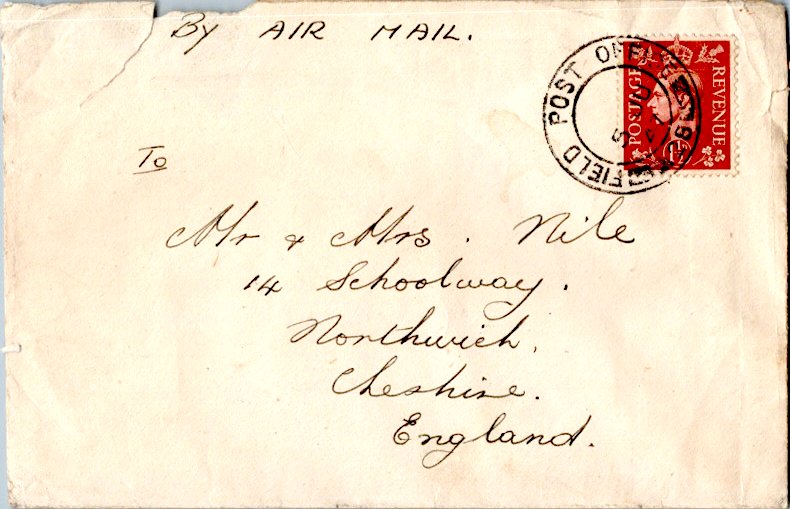 By AIR MAIL.
FIELD POST OFFICE
POSTAGE
REVENUE
To
Mr & Mrs. Nile
14 Schoolway.
Northwich,
Cheshire.
England.